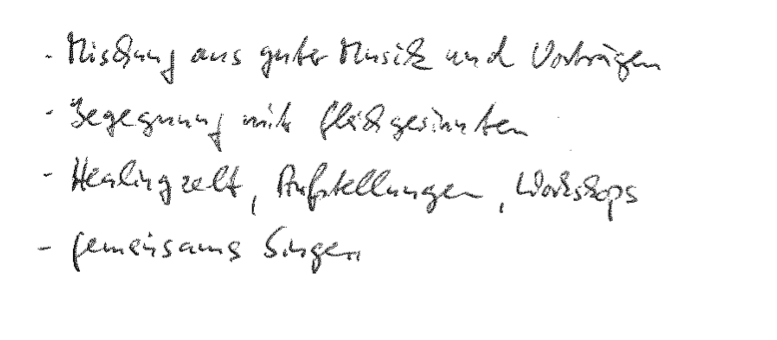 - Mischung aus guter Musik und Vorträgen
- Begegnung mit gleichgesinnten
- Healingzelt, Aufstellungen, Workshops
- gemeinsames Singen